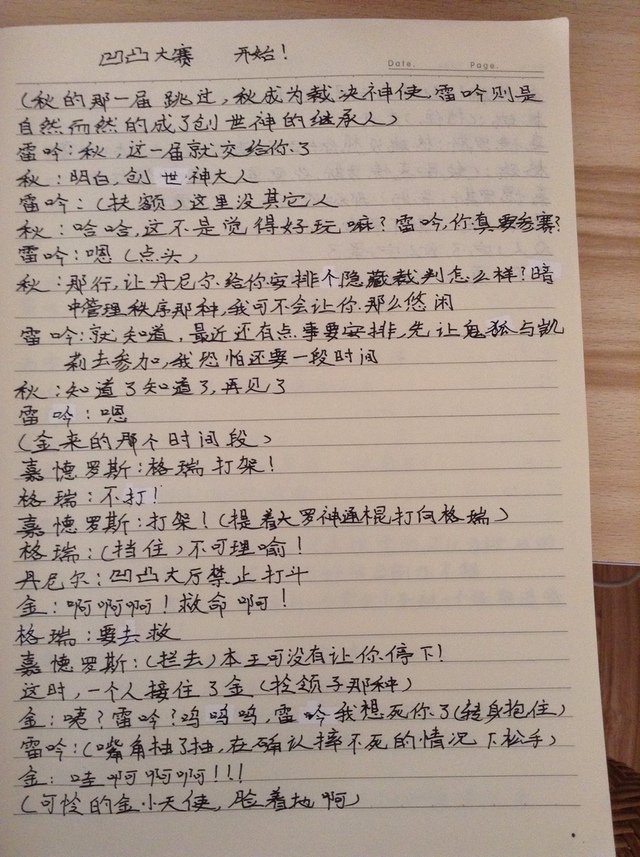 凹凸大赛 开始！
Date. Page.
（秋的那一届跳过，秋成为裁决神使，雷吟则是
自然而然的成了创世神的继承人）
雷吟：秋，这一届就交给你了
秋：明白，创世神大人
雷吟：（扶额）这里没其它人
秋：哈哈，这不是觉得好玩嘛？雷吟，你真要参赛？
雷吟：嗯（点头）
秋：那行，让丹尼尔给你安排个隐藏裁判怎么样？暗
中管理秩序那种，我可不会让你那么悠闲
雷吟：就知道，最近还有点事要安排，先让鬼狐与凯
莉去参加，我恐怕还要一段时间
秋：知道了知道了，再见了
雷吟：嗯
（金来的那个时间段）
嘉德罗斯：格瑞打架！
格瑞：不打！
嘉德罗斯：打架！（提着大罗神通棍打向格瑞）
格瑞：（挡住）不可理喻！
丹尼尔：凹凸大厅禁止打斗
金：啊啊啊！救命啊！
格瑞：要去救
嘉德罗斯：（拦去）本王可没有让你停下！
这时，一个人接住了金（拎领子那种）
金：咦？雷吟？呜呜呜，雷吟我想死你了（转身抱住）
雷吟：（嘴角抽了抽，在确认摔不死的情况下松手）
金：哇啊啊啊！！！
（可怜的金小天使，脸着地啊）